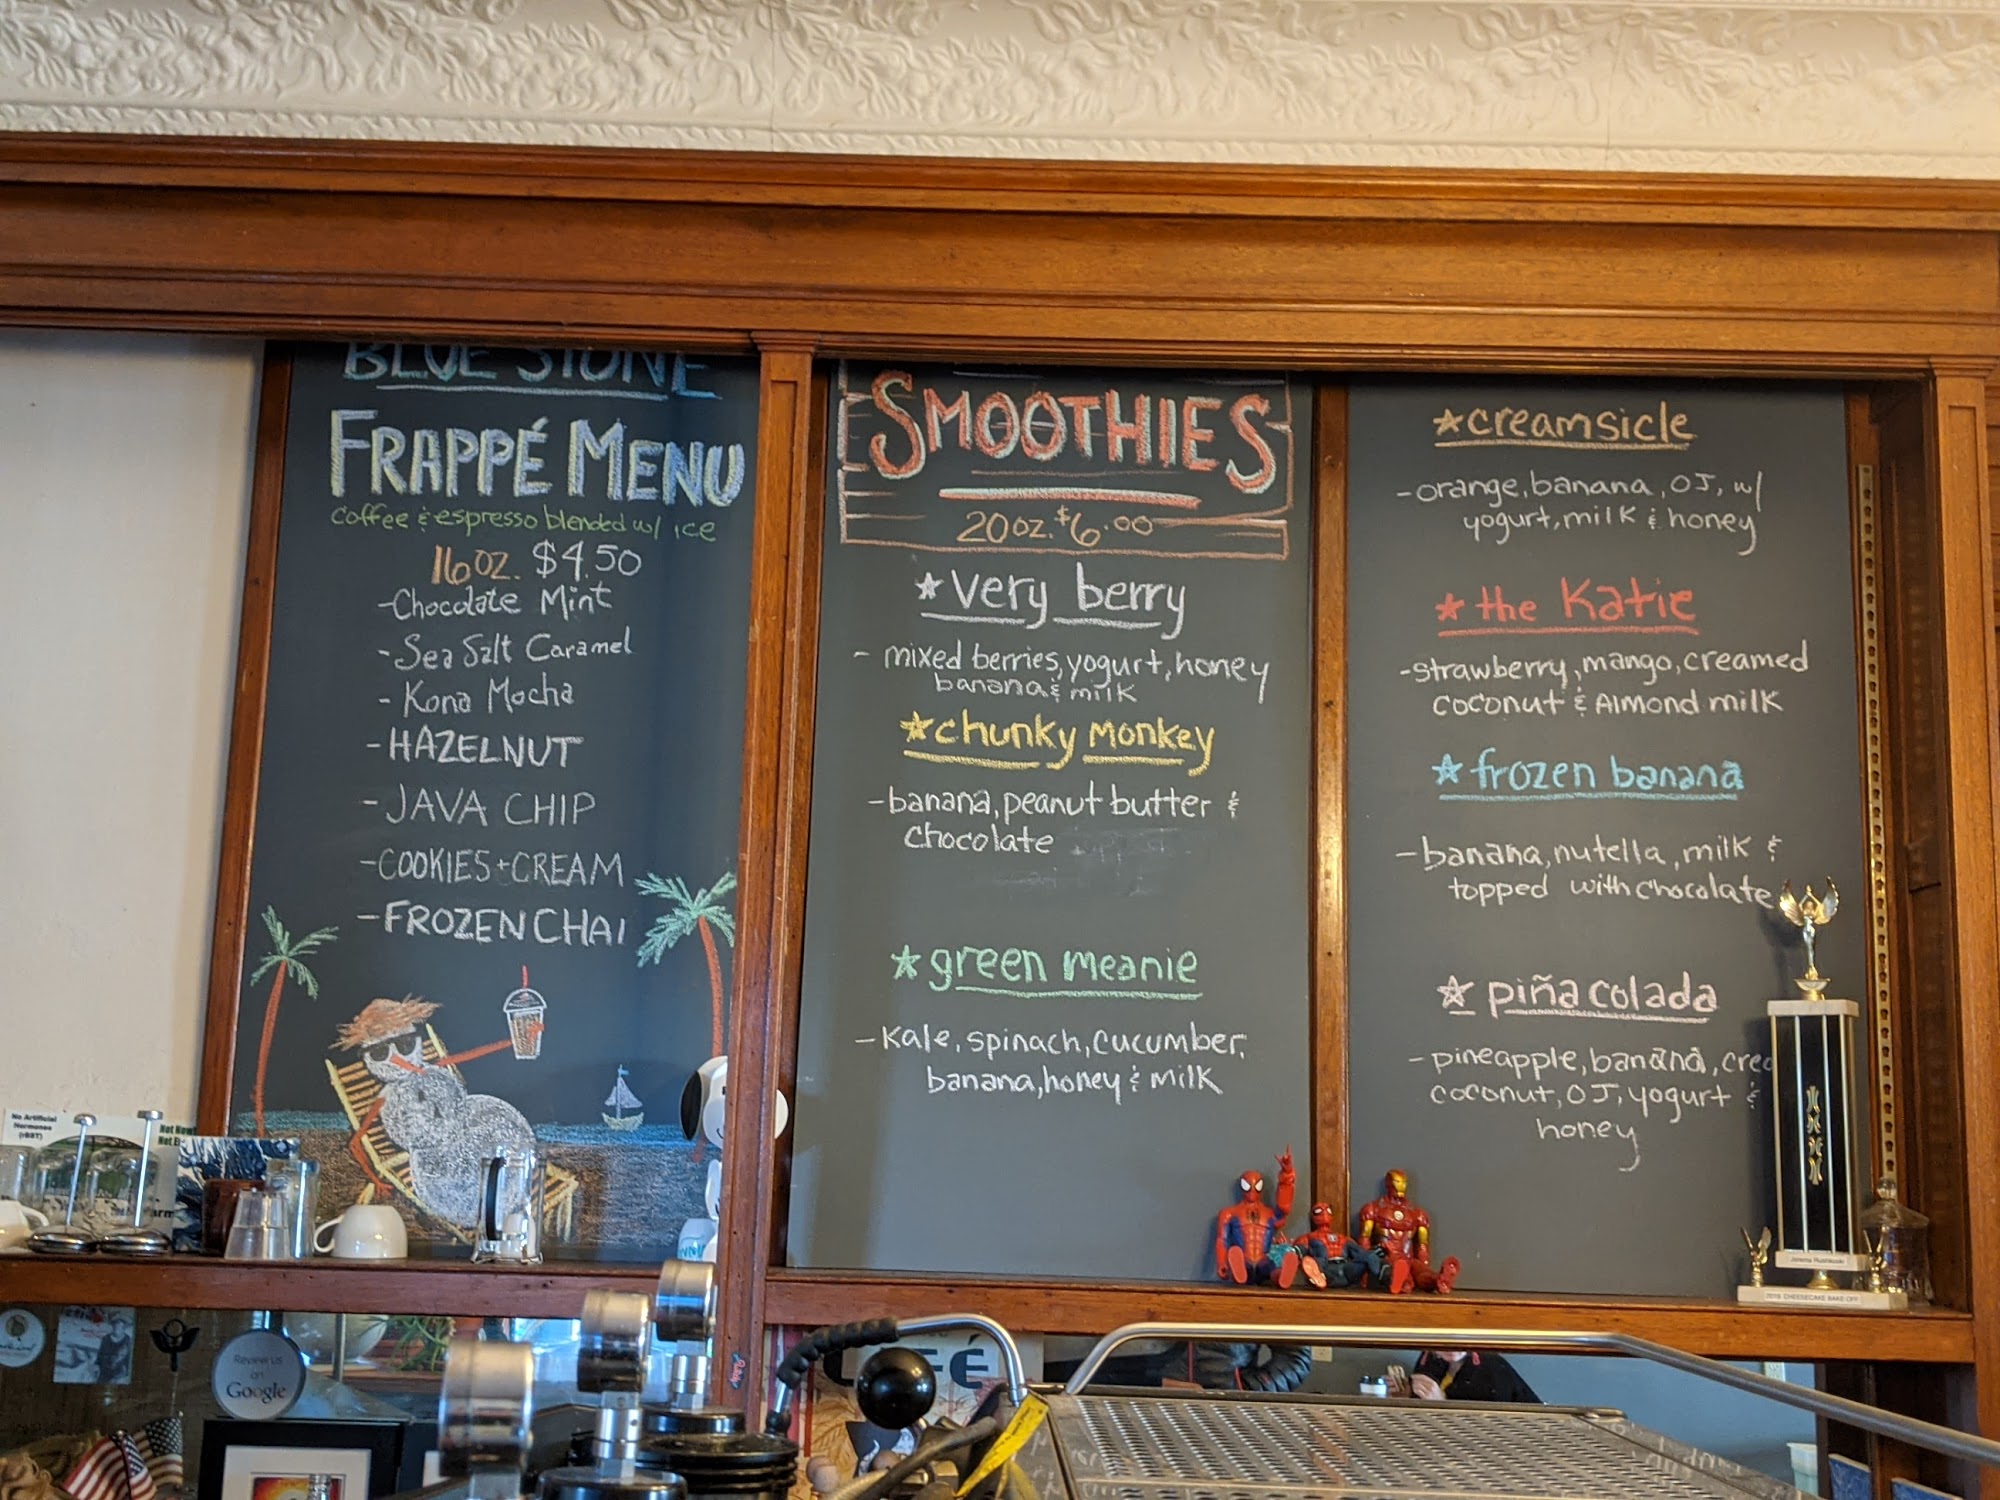 BLUE STONE
FRAPPÉ MENU
coffee & espresso blended w/ ice
16 oz. $4.50
-Chocolate Mint
-Sea Salt Caramel
-Kona Mocha
-HAZELNUT
-JAVA CHIP
-COOKIES+CREAM
-FROZEN CHAI
SMOOTHIES
20 oz. $6.00
★very berry
- mixed berries, yogurt, honey
banana & milk
★chunky monkey
-banana, peanut butter &
chocolate
★green meanie
-kale, spinach, cucumber,
banana, honey & milk
★creamsicle
-orange, banana, OJ, w/
yogurt, milk & honey
★the Katie
-strawberry, mango, creamed
coconut & Almond milk
★frozen banana
-banana, nutella, milk &
topped with chocolate
★piña colada
-pineapple, banana, crea
coconut, OJ, yogurt &
honey
No Artificial
Hormones
(rBST)
Review us
on
Google
CHEESECAKE BAKE OFF